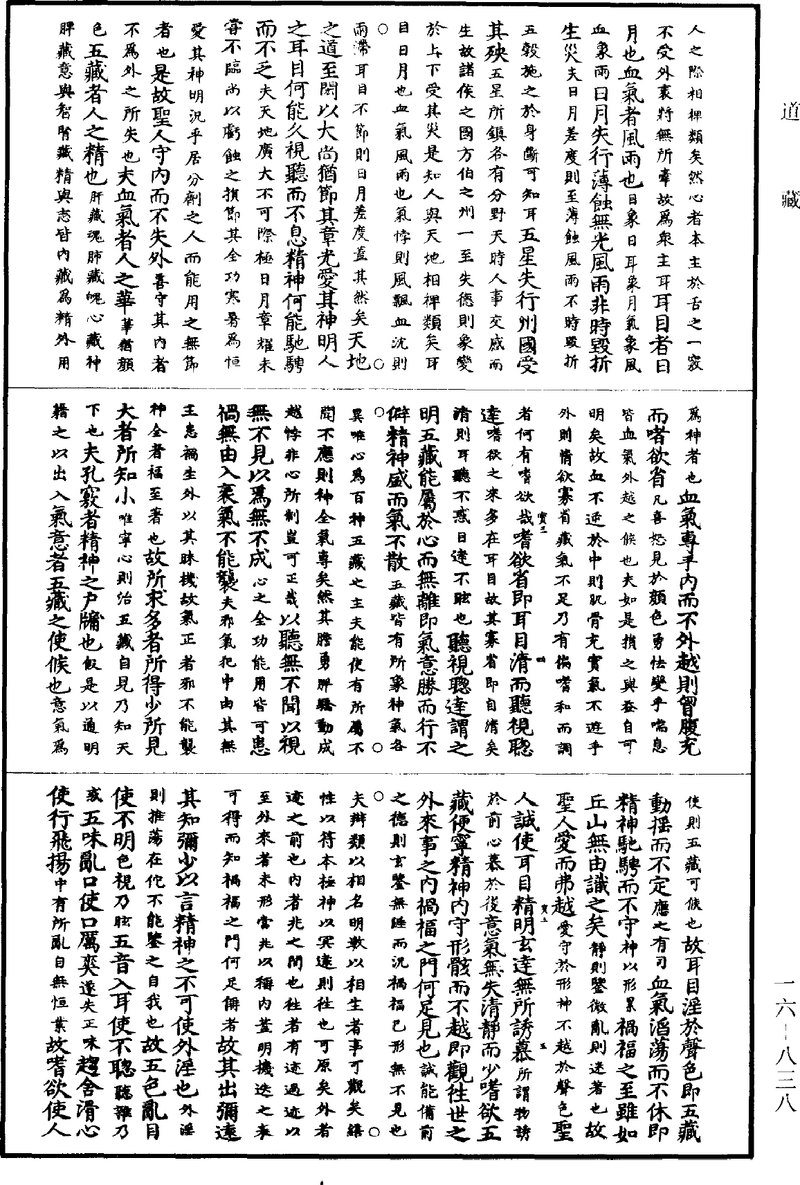 道藏
人之際相稗類矣然心者本主於舌之一竅
不受外裹將無所牽故為眾主耳耳目者日
月也血氣者風雨也目象日耳象月氣象風
血象雨日月失行薄蝕無光風雨非時毀折
生災夫日月差度則至薄蝕風雨不時毀折
五穀施之於身斷可知耳五星失行州國受
其殃五星所鎮各有分野天時人事交感而
生故諸侯之國方伯之州一至失德則象變
於上下受其災是知人與天地相稗類矣耳
目日月也血氣風雨也氣悖則風飄血沈則
雨滯耳目不節則日月差度蓋其然矣天地
之道至閎以大尚猶節其章光愛其神明人
之耳目何能久視聽而不息精神何能馳騁
而不乏夫天地廣大不可際極日月章耀未
甞不臨尚以虧蝕之損節其全功寒暑為恒
愛其神明況乎居分劑之人而能用之無節
者也是故聖人守內而不失外善守其內者
不為外之所失也夫血氣者人之華華猶顏
色五藏者人之精也肝藏魂肺藏魄心藏神
脾藏意與智腎藏精與志皆內藏為精外用
為神者也血氣專乎內而不外越則胷腹充
而嗜欲省凡喜怒見於顏色勇怯變乎喘息
皆血氣外越之候也夫如是損之與益自可
明矣故血不逆於中則肌骨充實氣不遊乎
外則情欲寡省藏氣不足乃有偏嗜和而調
者何有嗜欲哉嗜欲省即耳目清而聽視聰
達嗜欲之來多在耳目故其寡省即自清矣
清則耳聽不惑目達不眩也聽視聰達謂之
明五藏能屬於心而無離即氣意勝而行不
僻精神盛而氣不散五藏皆有所象神氣各
異唯心為百神五藏之主夫能使有所屬不
間不應則神全氣專矣然其膽勇脾驕動成
越悖非心所制豈可正哉以聽無不聞以視
無不見以為無不成心之全功能用皆可患
禍無由入衺氣不能襲夫邪氣犯中由其無
主患禍生外以其昧機故氣正者邪不能襲
神全者福至著也故所求多者所得少所見
大者所知小唯寧心則治五藏自見乃知天
下也夫孔竅者精神之戶牖也假是以通明
藉之以出入氣意者五藏之使候也意氣為
使則五藏可候也故耳目淫於聲色即五藏
動搖而不定應之有司血氣滔蕩而不休即
精神馳騁而不守神以形累禍福之至雖如
丘山無由識之矣靜則鑒微亂則迷著也故
聖人愛而弗越愛守於形神不越於聲色聖
人誠使耳目精明玄達無所誘慕所謂物誘
於前心慕於後意氣無失清靜而少嗜欲五
藏便寧精神內守形骸而不越即觀徃世之
外來事之內禍福之門何足見也誠能備前
之德則玄鑒無歸而況禍福已形無不見也
夫辯類以相名明數以相生者事可觀矣繕
性以符本極神以冥遠則徃也可原矣外者
迹之前也內者兆之間也徃者有迹過迹以
至外來者未形當兆以稱內蓋明機迭之表
可得而知禍福之門何足稱者故其出彌遠
其知彌少以言精神之不可使外淫也外淫
則推蕩在佗不能鑒之自我也故五色亂目
使不明色視乃眩五音入耳使不聰聽雜乃
惑五味亂口使口厲爽遂失正味趨舍滑心
使行飛揚中有所亂自無恒業故嗜欲使人
一六－八三八